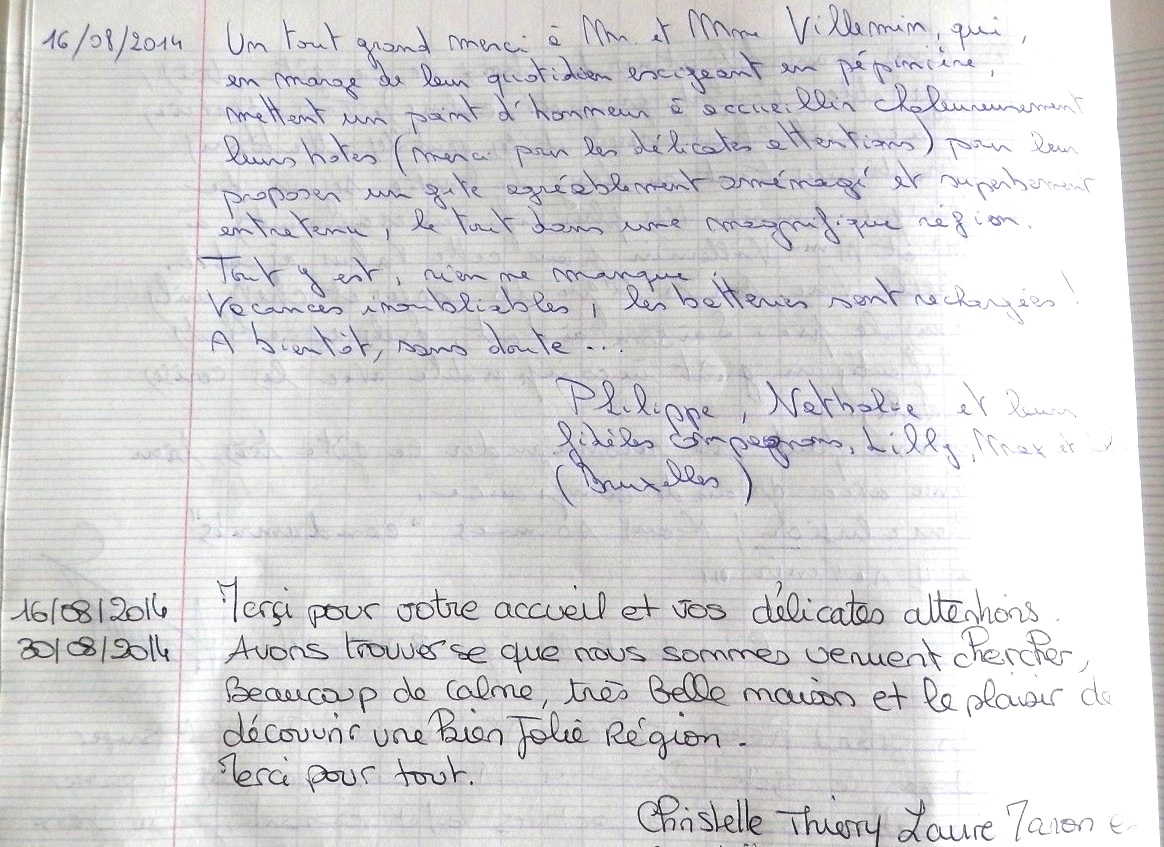 16/08/2014 Un tout grand merci à Mr. et Mme Villemin, qui,
en marge de leur quotidien exigeant en pépinière,
mettent un point d'honneur à accueillir chaleureusement
leurs hotes (merci pour les délicates attentions) pour leur
proposer un gite agréablement aménagé et superbement
entretenu, le tout dans une magnifique région.
Tout y est, rien ne manque.
Vacances inoubliables, les batteries sont rechargées !
A bientôt, sans doute ...
Philippe, Nathalie et leurs
fidèles compagnons, Lilly, Max et
(Bruxelles)
16/08/2014 Merçi pour votre accueil et vos délicates attentions.
30/08/2014 Avons trouver se que nous sommes venuent chercher,
Beaucoup de calme, très Belle maison et le plaisir de
découvrir une Bien Jolie Région.
Merci pour tout.
Christelle Thierry Laure